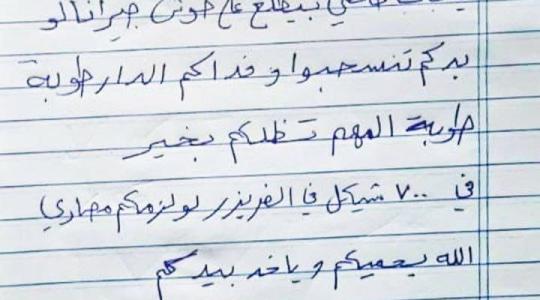 بيطلع ع حوش جيرانا لو
بدكم تنسحبوا وفداكم الدار طوبة
طوبة المهم تظلكم بخير
في ٧٠٠ شيكل في الفريزر لو لزمكم مصاري
الله يحميكم وياخد بيدكم